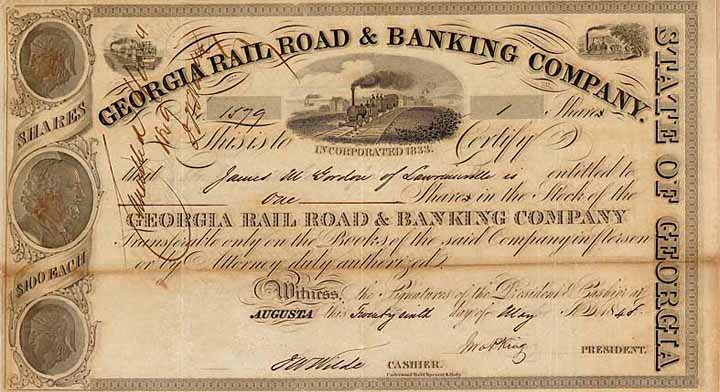 GEORGIA RAIL ROAD & BANKING COMPANY.
1579
1 Shares
This is to Certify
INCORPORATED 1833.
that James M Gordon of Lawrenceville is entitled to
One Shares in the Stock of the
GEORGIA RAIL ROAD & BANKING COMPANY
Transferable only on the Books of the said Company in person
or by Attorney duly authorized.
Witness, the Signatures of the President & Cashier at
AUGUSTA this Twenty sixth day of May A.D. 1848.
Jno P King
PRESIDENT.
J W Wilde
CASHIER.
SHARES
$100 EACH
STATE OF GEORGIA